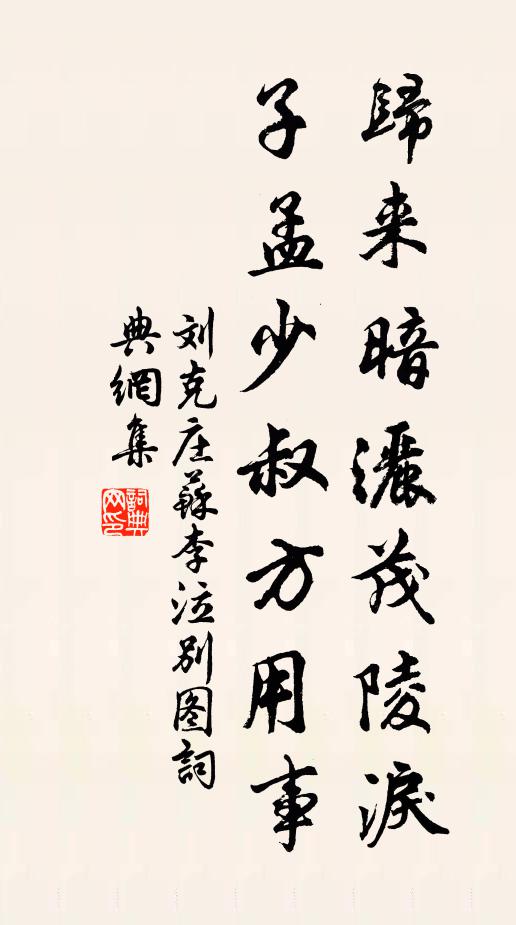 歸来暗灑茂陵淚
子孟少叔方用事
刘克庄蘇李泣别图詞
典網集
詞典網印